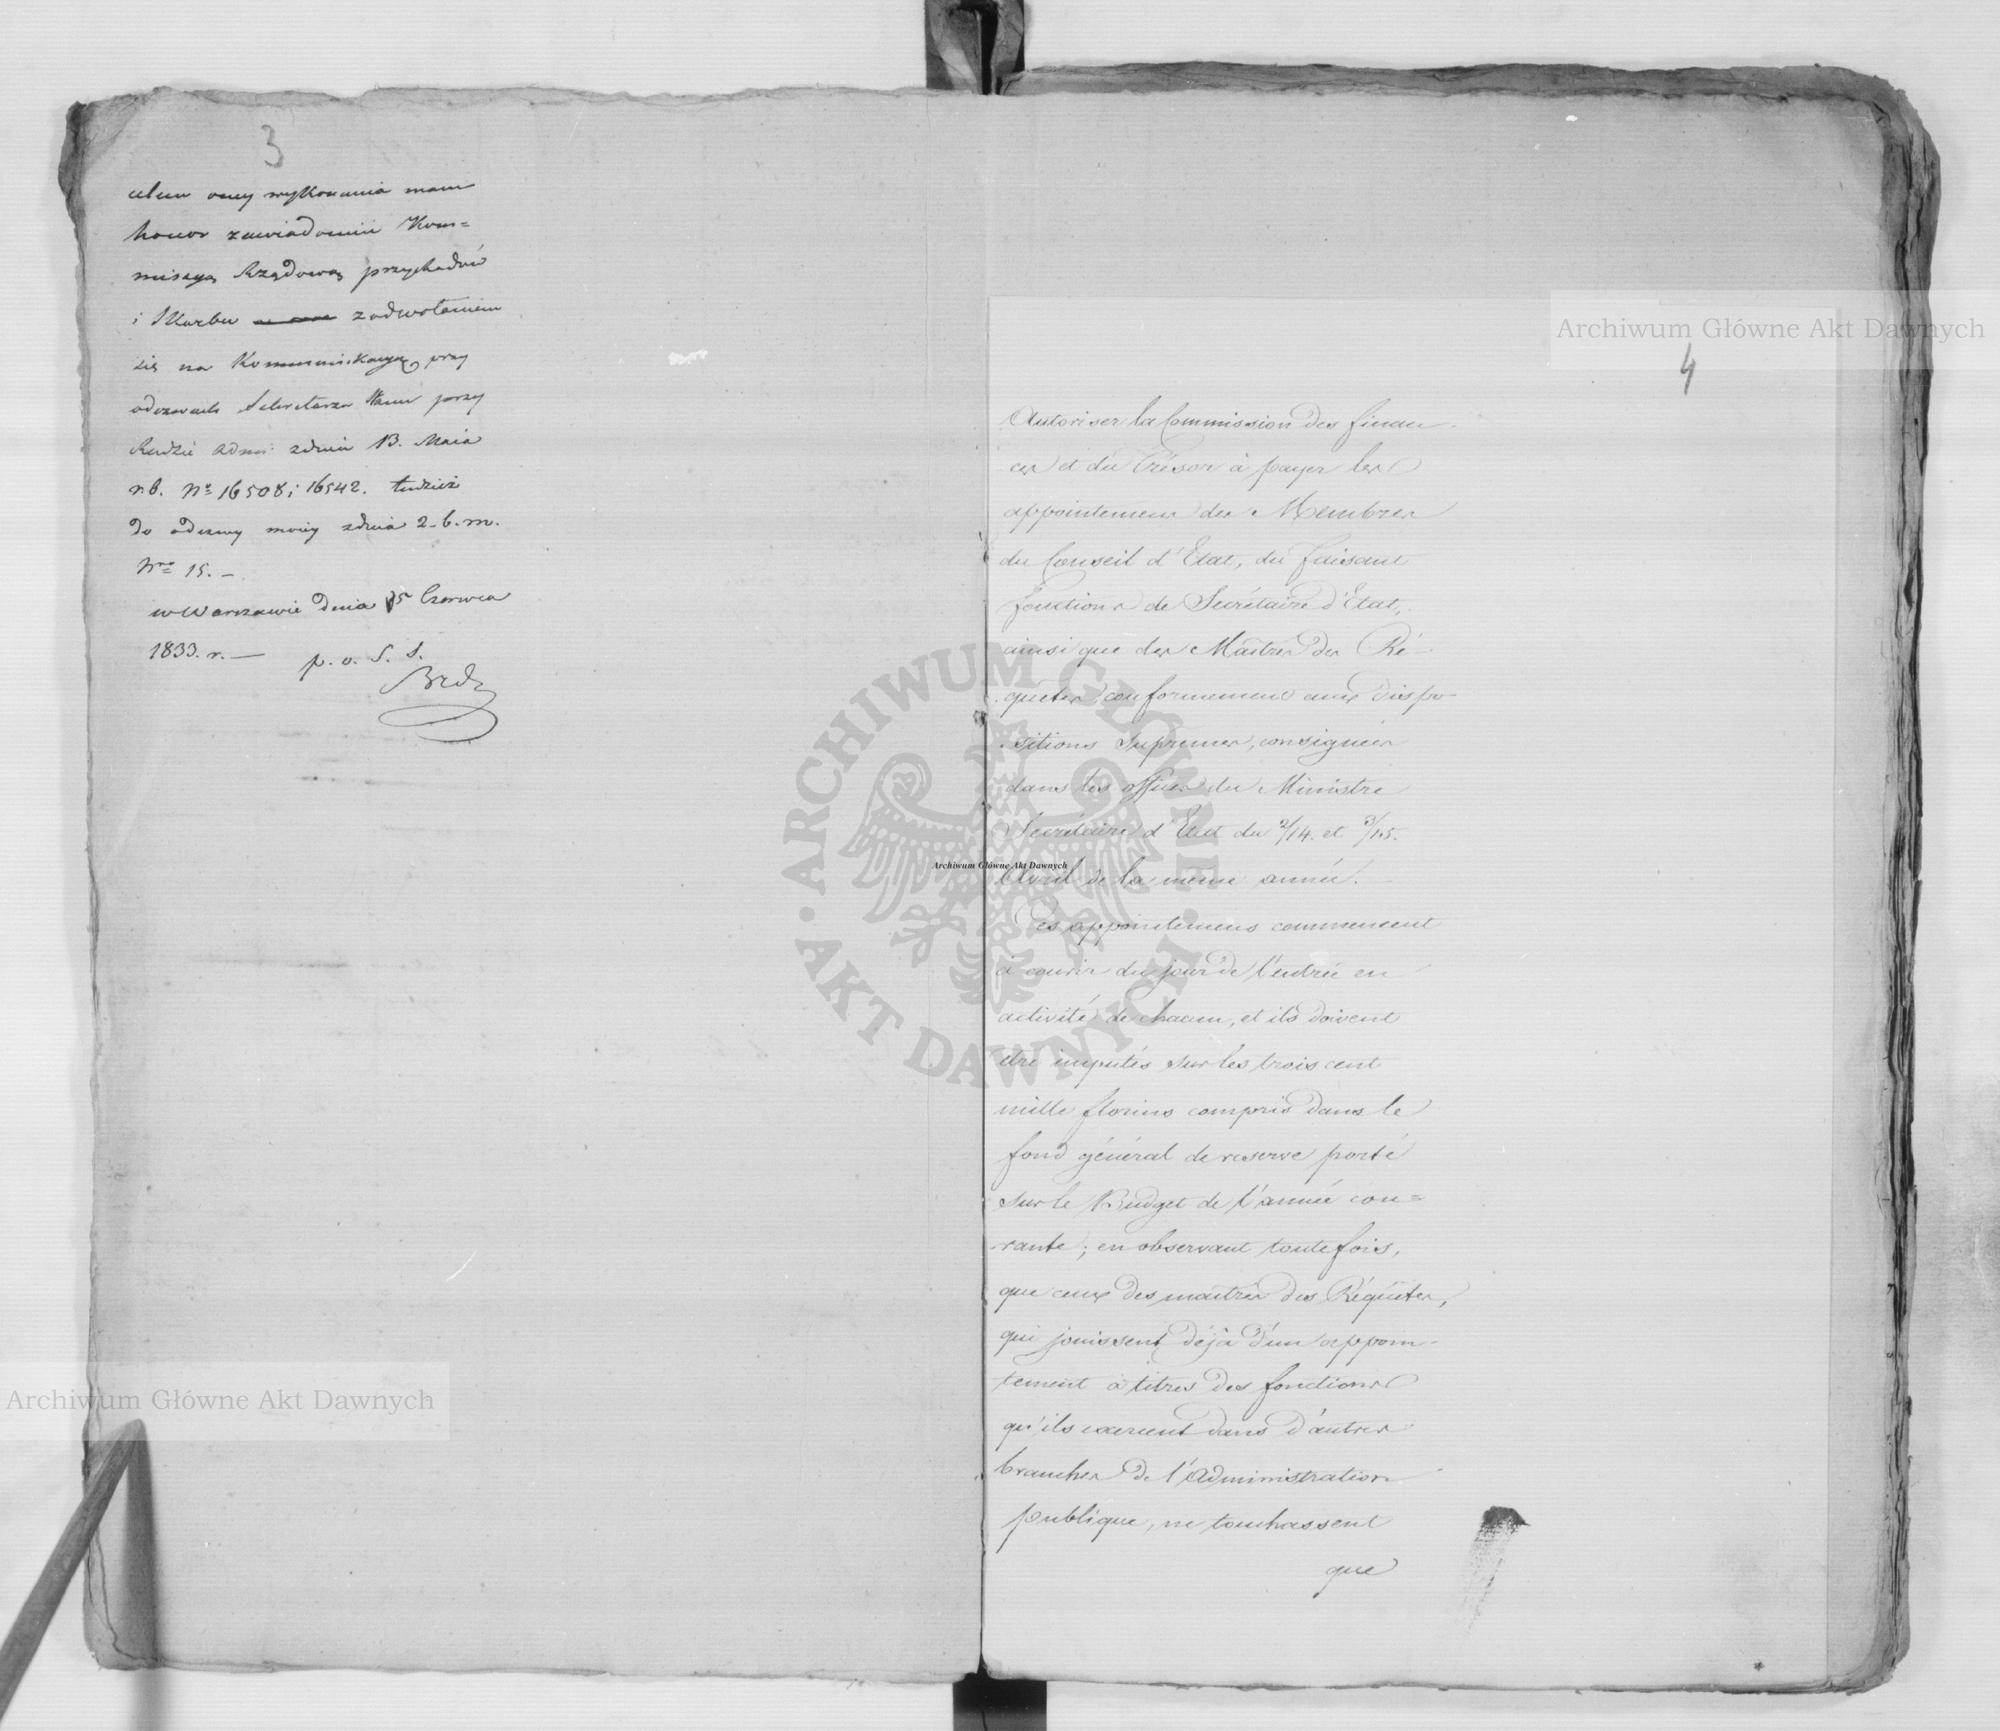 3
celem oney wykonania mam
honor zawiadomić Kom=
missyą Rządową przychodów
i Skarbu z odwołaniem
się na Kommunikacyą przy
odezwach Sekretarza Stanu przy
Radzie Adm: z dnia 13. Maia
r. b. No 16508 i 16542. tudzież
do odezwy moiey z dnia 2. b. m.
Nro 15. –
w Warszawie dnia 15 Czerwca
1833. r. —
p. o. S. S.
4
Autoriser la Commission des finan-
ces et du Trésor à payer les
appointemens des Membres
du Conseil d'Etat, du faisant
fonctions de Secrétaire d'Etat,
ainsi que des Maitres des Ré-
quêtes, conformement aux dispo-
sitions Supremes, consignées
dans les offices du Ministre
Secrétaire d'Etat du 2/14. et 3/15.
Avril de la même année. —
Ces appointemens commencent
à courir du jour de l'entrée en
activité de chacun, et ils doivent
etre imputés sur les trois cent
mille florins compris dans le
fond général de reserve porté
sur le Budget de l'année cou=
rante; en observant toutefois,
que ceux des maitres des Réquêtes,
qui jouissent déjà d'un appoin-
tement à titres des fonctions
qu'ils exercent dans d'autres
branches de l'Administration
publique, ne touchassent
que
Archiwum Główne Akt Dawnych
Archiwum Główne Akt Dawnych
Archiwum Główne Akt Dawnych
ARCHIWUM GŁÓWNE · AKT DAWNYCH ·